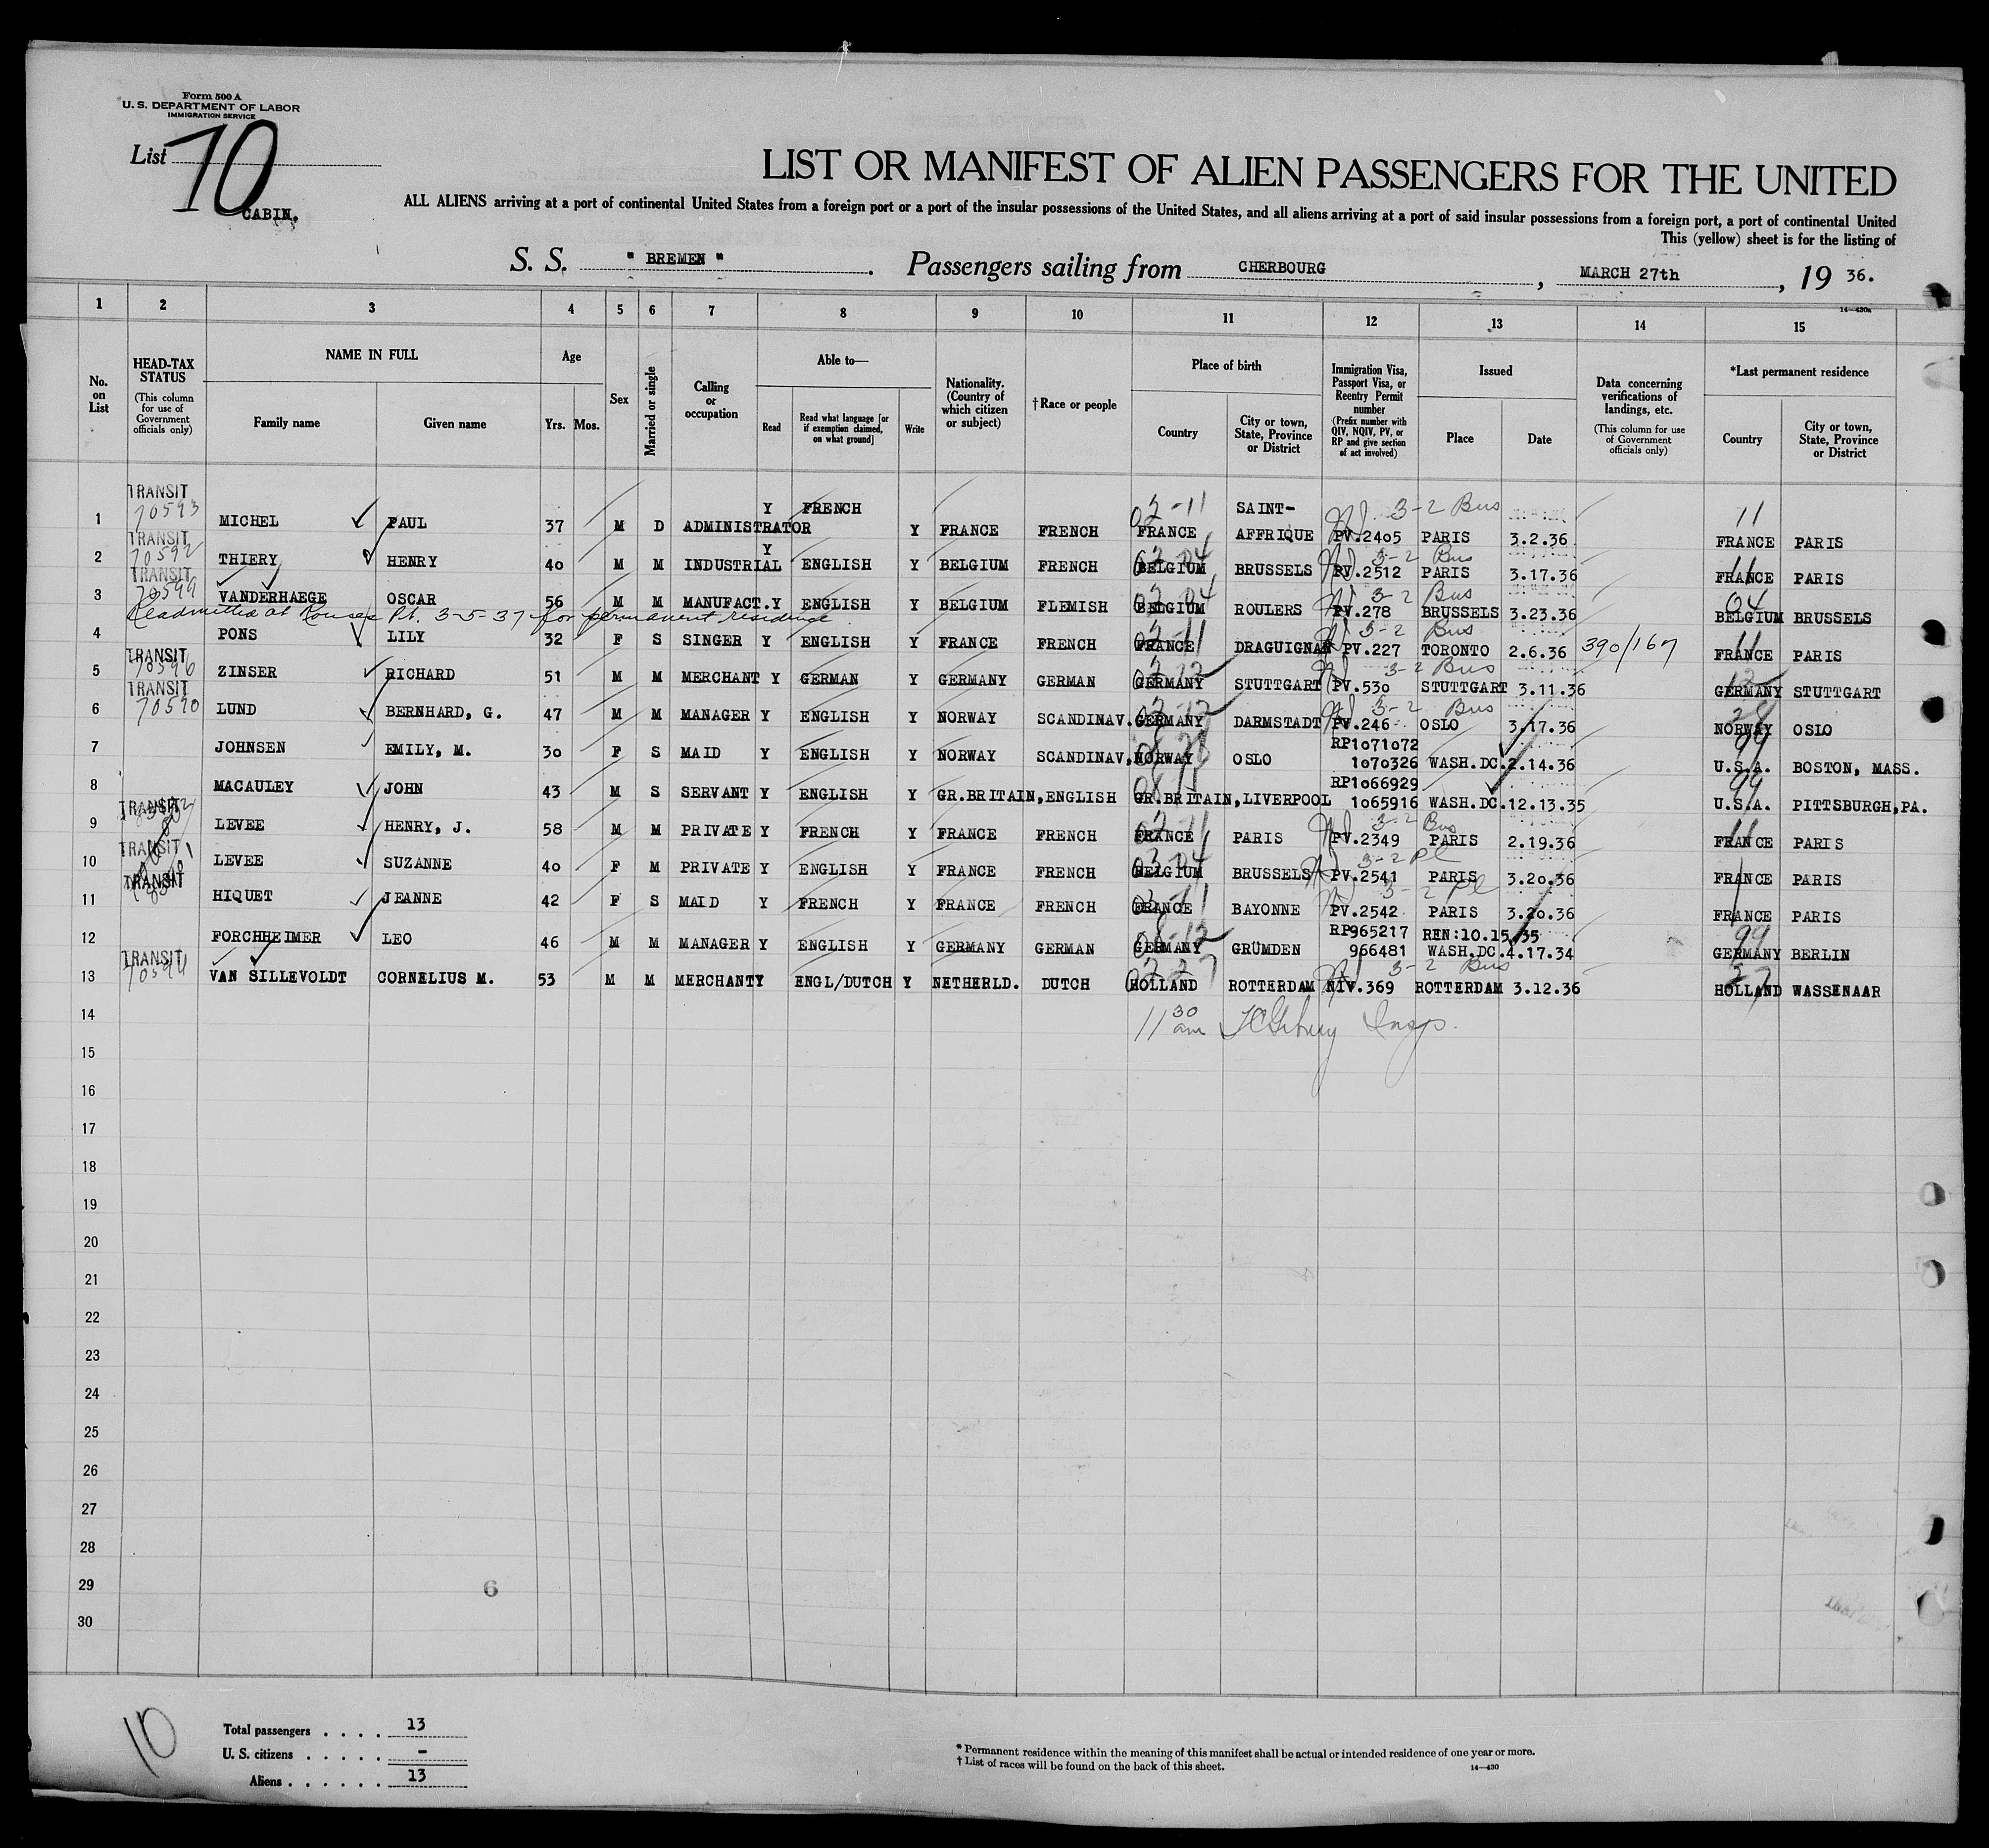 Form 500 A
U. S. DEPARTMENT OF LABOR
IMMIGRATION SERVICE
List 10
CABIN.
LIST OR MANIFEST OF ALIEN PASSENGERS FOR THE UNITED
ALL ALIENS arriving at a port of continental United States from a foreign port or a port of the insular possessions of the United States, and all aliens arriving at a port of said insular possessions from a foreign port, a port of continental United
This (yellow) sheet is for the listing of
S. S. " BREMEN " . Passengers sailing from CHERBOURG , MARCH 27th , 19 36.
14—430a
1 2 3 4 5 6 7 8 9 10 11 12 13 14 15
No. on List
HEAD-TAX STATUS (This column for use of Government officials only)
NAME IN FULL
Family name Given name
Age
Yrs. Mos.
Sex
Married or single
Calling or occupation
Able to—
Read Read what language [or if exemption claimed, on what ground] Write
Nationality. (Country of which citizen or subject)
†Race or people
Place of birth
Country City or town, State, Province or District
Immigration Visa, Passport Visa, or Reentry Permit number (Prefix number with QIV, NQIV, PV, or RP and give section of act involved)
Issued
Place Date
Data concerning verifications of landings, etc. (This column for use of Government officials only)
*Last permanent residence
Country City or town, State, Province or District
TRANSIT 70593 02-11 3-2 Bus 11
1 MICHEL PAUL 37 M D ADMINISTRATOR Y FRENCH Y FRANCE FRENCH FRANCE SAINT-AFFRIQUE PV.2405 PARIS 3.2.36 FRANCE PARIS
TRANSIT 70592 3-2 Bus
2 THIERY HENRY 40 M M INDUSTRIAL Y ENGLISH Y BELGIUM FRENCH BELGIUM BRUSSELS PV.2512 PARIS 3.17.36 FRANCE PARIS
TRANSIT 3-2 Bus
3 VANDERHAEGE OSCAR 56 M M MANUFACT. Y ENGLISH Y BELGIUM FLEMISH BELGIUM ROULERS PV.278 BRUSSELS 3.23.36 BELGIUM BRUSSELS
Readmitted at Rouses Pt. 3-5-37 for permanent residence
3-2 Bus
4 PONS LILY 32 F S SINGER Y ENGLISH Y FRANCE FRENCH FRANCE DRAGUIGNAN PV.227 TORONTO 2.6.36 390/167 FRANCE PARIS
TRANSIT 70596 3-2 Bus
5 ZINSER RICHARD 51 M M MERCHANT Y GERMAN Y GERMANY GERMAN GERMANY STUTTGART PV.530 STUTTGART 3.11.36 GERMANY STUTTGART
TRANSIT 3-2 Bus
6 LUND BERNHARD, G. 47 M M MANAGER Y ENGLISH Y NORWAY SCANDINAV. GERMANY DARMSTADT PV.246 OSLO 3.17.36 NORWAY OSLO
7 JOHNSEN EMILY, M. 30 F S MAID Y ENGLISH Y NORWAY SCANDINAV, NORWAY OSLO RP1071072 1070326 WASH.DC.2.14.36 U.S.A. BOSTON, MASS.
8 MACAULEY JOHN 43 M S SERVANT Y ENGLISH Y GR.BRITAIN, ENGLISH GR.BRITAIN, LIVERPOOL RP1066929 1065916 WASH.DC.12.13.35 U.S.A. PITTSBURGH,PA.
TRANSIT 3-2 Bus
9 LEVEE HENRY, J. 58 M M PRIVATE Y FRENCH Y FRANCE FRENCH FRANCE PARIS PV.2349 PARIS 2.19.36 FRANCE PARIS
TRANSIT 3-2 Pl
10 LEVEE SUZANNE 40 F M PRIVATE Y ENGLISH Y FRANCE FRENCH BELGIUM BRUSSELS PV.2541 PARIS 3.20.36 FRANCE PARIS
TRANSIT 3-2 Pl
11 HIQUET JEANNE 42 F S MAID Y FRENCH Y FRANCE FRENCH FRANCE BAYONNE PV.2542 PARIS 3.20.36 FRANCE PARIS
12 FORCHHEIMER LEO 46 M M MANAGER Y ENGLISH Y GERMANY GERMAN GERMANY GRÜMDEN RP965217 966481 REN:10.15.35 WASH.DC.4.17.34 GERMANY BERLIN
TRANSIT 3-2 Bus
13 VAN SILLEVOLDT CORNELIUS M. 53 M M MERCHANT Y ENGL/DUTCH Y NETHERLD. DUTCH HOLLAND ROTTERDAM NIV.369 ROTTERDAM 3.12.36 HOLLAND WASSENAAR
14 11 30 am Insp.
15
16
17
18
19
20
21
22
23
24
25
26
27
28
29 6
30
10
Total passengers . . . . 13
U. S. citizens . . . . . –
Aliens . . . . . . 13
* Permanent residence within the meaning of this manifest shall be actual or intended residence of one year or more.
† List of races will be found on the back of this sheet.
14—430